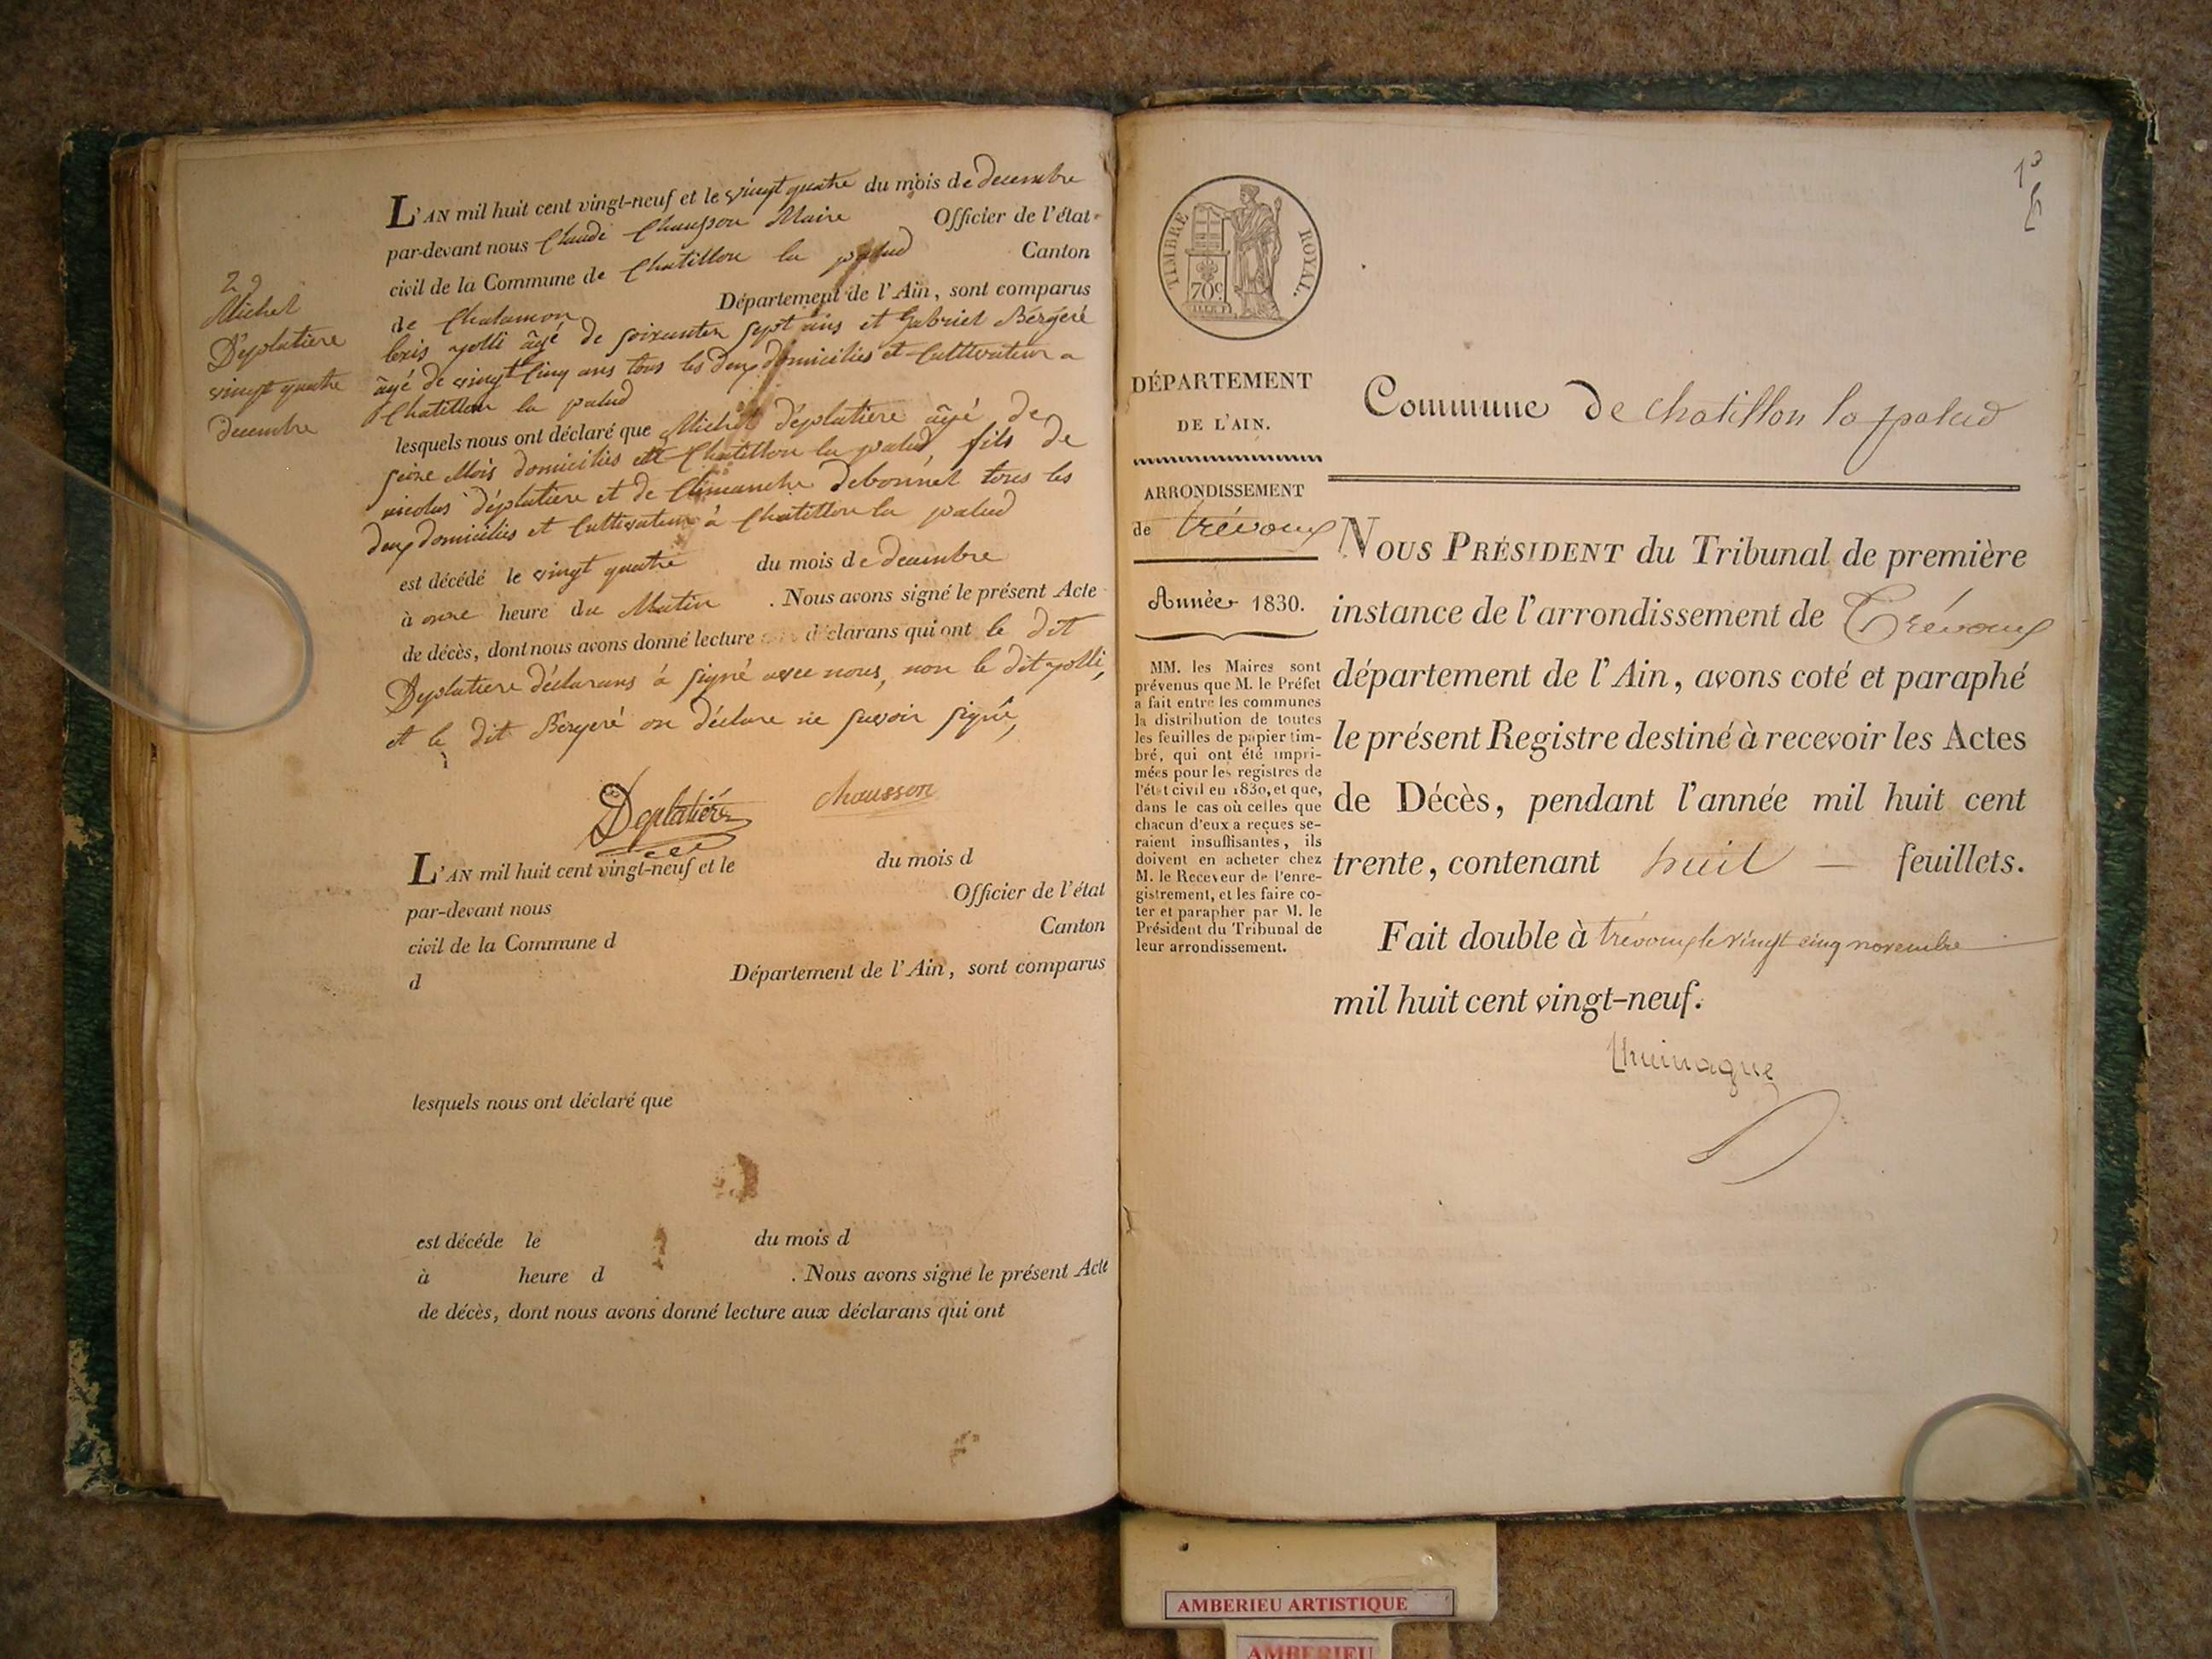 L'AN mil huit cent vingt-neuf et le vingt quatre du mois de decembre
par-devant nous Claude Chausson Maire Officier de l'état
civil de la Commune de Chatillon la palud Canton
de Chalamon Département de l'Ain, sont comparus
âgé de soixanten sept ans et Gabriel Bergeré
âgé de vingt Cinq ans tous les deux domiciliés et Cultivateur a
Chatillon la palud
lesquels nous ont déclaré que Michel déplatiere âgé de
seize Mois domiciliés Chatillon la palud, fils de
nicolas déplatiere et de debonnet tous les
deux domiciliés et Cultivateur à Chatillon la palud
est décédé le vingt quatre du mois de decembre
à onze heure du Matin . Nous avons signé le présent Acte
de décès, dont nous avons donné lecture déclarans qui ont le dit
Deplatiere déclarans à signé avec nous, non le dit polli,
et le dit Bergeré on déclare ne savoir signé,
29
Michel
Déplatiere
vingt quatre
decembre
Deplatière chausson
L'AN mil huit cent vingt-neuf et le du mois d
par-devant nous Officier de l'état
civil de la Commune d Canton
d Département de l'Ain, sont comparus
lesquels nous ont déclaré que
est décédé le du mois d
à heure d . Nous avons signé le présent Acte
de décès, dont nous avons donné lecture aux déclarans qui ont
1º
TIMBRE ROYAL.
70ᶜ
DÉPARTEMENT
DE L'AIN.
ARRONDISSEMENT
de trévoux
Année 1830.
MM. les Maires sont
prévenus que M. le Préfet
a fait entre les communes
la distribution de toutes
les feuilles de papier tim-
bré, qui ont été impri-
mées pour les registres de
l'état civil en 1830, et que,
dans le cas où celles que
chacun d'eux a reçues se-
raient insuffisantes, ils
doivent en acheter chez
M. le Receveur de l'enre-
gistrement, et les faire co-
ter et parapher par M. le
Président du Tribunal de
leur arrondissement.
Commune de chatillon la palud
NOUS PRÉSIDENT du Tribunal de première
instance de l'arrondissement de Trévoux
département de l'Ain, avons coté et paraphé
le présent Registre destiné à recevoir les Actes
de Décès, pendant l'année mil huit cent
trente, contenant huit — feuillets.
Fait double à trévoux le vingt cinq novembre
mil huit cent vingt-neuf.
AMBERIEU ARTISTIQUE
AMBERIEU